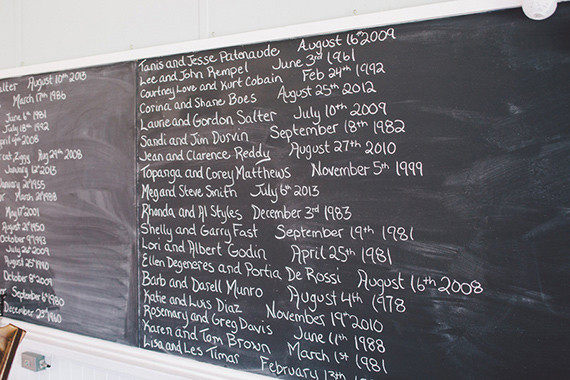 alter August 10th 2013
March 17th 1986
June 6th 1981
July 18th 1992
April 4th 2008
Aug 29th 2008
January 12th 2013
January 1955
March 1988
May 2001
August 21st 1950
October 9th 1993
July 2009
August 25th 1990
October 8th 2009
September 6th 1980
December 23rd 1960
Tanis and Jesse Patenaude August 16th 2009
Lee and John Rempel June 3rd 1961
Courtney Love and Kurt Cobain Feb 24th 1992
Corina and Shane Boes August 25th 2012
Laurie and Gordon Salter July 10th 2009
Sandi and Jim Durvin September 18th 1982
Jean and Clarence Reddy August 27th 2010
Topanga and Corey Matthews November 5th 1999
Meg and Steve Smith July 6th 2013
Rhonda and Al Styles December 3rd 1983
Shelly and Garry Fast September 19th 1981
Lori and Albert Godin April 25th 1981
Ellen Degeneres and Portia De Rossi August 16th 2008
Barb and Darell Munro August 4th 1978
Katie and Luis Diaz November 19th 2010
Rosemary and Greg Davis June 11th 1988
Karen and Tom Brown March 1st 1981
Lisa and Les Timar February 13th